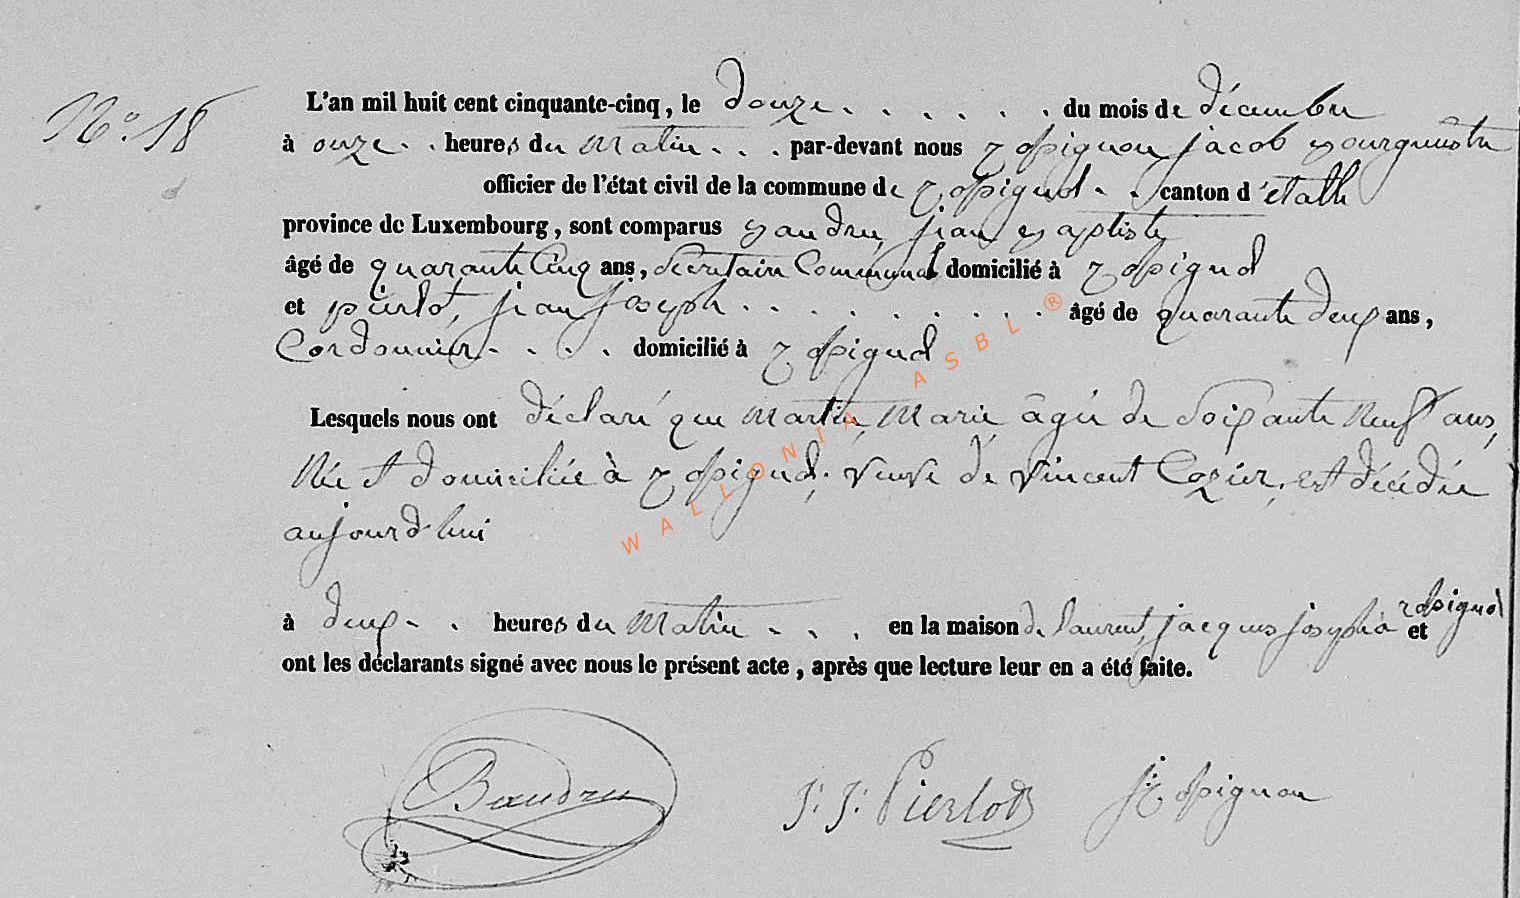 N.º 18
L'an mil huit cent cinquante-cinq, le douze . . . . . . du mois de décembre
à onze . . heures du matin . . . par-devant nous Rossignon jacob Bourgmestre
officier de l'état civil de la commune de Rossignol . . canton d'etalle
province de Luxembourg, sont comparus Baudru, jean Baptiste
âgé de quarante Cinq ans, Secretaire Communal domicilié à Rossignol
et pierlot, jean joseph . . . . . . . . . âgé de quarante deux ans,
Cordonnier . . . . domicilié à Rossignol
Lesquels nous ont déclaré que Martin, Marie âgée de Soixante Neuf ans,
Née et domiciliée à Rossignol, veuve de Vincent Cozier, est décédée
aujourd'hui
à deux . . heures du Matin . . . en la maison de laurent, jacques joseph à Rossignol et
ont les déclarants signé avec nous le présent acte, après que lecture leur en a été faite.
Baudru J: J: Pierlot J: Rossignon
WALLONIA ASBL ®